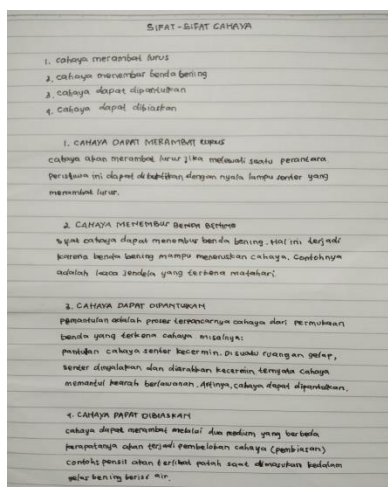 SIFAT-SIFAT CAHAYA
1. cahaya merambat lurus
2. cahaya menembus benda bening
3. cahaya dapat dipantulkan
4. cahaya dapat dibiaskan
1. CAHAYA DAPAT MERAMBAT LURUS
cahaya akan merambat lurus jika melewati suatu perantara.
peristiwa ini dapat dibuktikan dengan nyala lampu senter yang
merambat lurus.
2. CAHAYA MENEMBUS BENDA BENING
sifat cahaya dapat menembus benda bening. Hal ini terjadi
karena benda bening mampu meneruskan cahaya. Contohnya
adalah kaca jendela yang terkena matahari.
3. CAHAYA DAPAT DIPANTULKAN
pemantulan adalah proses terpancarnya cahaya dari permukaan
benda yang terkena cahaya misalnya:
pantulan cahaya senter kecermin. Disuatu ruangan gelap,
senter dinyalakan dan diarahkan kecermin ternyata cahaya
memantul kearah berlawanan. Artinya, cahaya dapat dipantulkan.
4. CAHAYA DAPAT DIBIASKAN
cahaya dapat merambat melalui dua medium yang berbeda
kerapatanya akan terjadi pembelokan cahaya (pembiasan)
contohs pensil akan terlihat patah saat dimasukan kedalam
gelas bening berisi air.